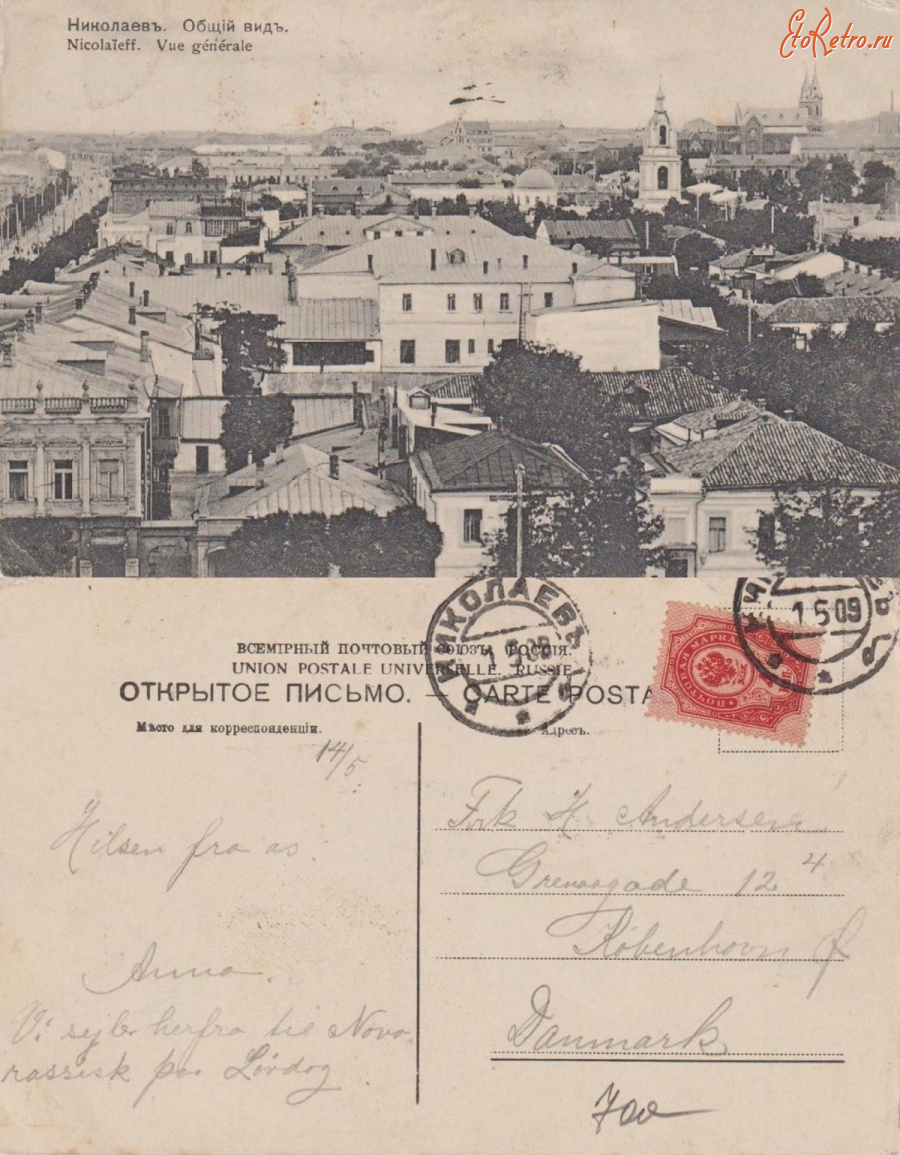 Николаевъ. Общій видъ.
Nicolaïeff. Vue générale
EtoRetro.ru
ВСЕМІРНЫЙ ПОЧТОВЫЙ СОЮЗЪ. РОССІЯ.
UNION POSTALE UNIVERSELLE. RUSSIE
ОТКРЫТОЕ ПИСЬМО. — CARTE POSTA
НИКОЛАЕВЪ
1 5 09
1 5 09
ПОЧТОВАЯ МАРКА
Мѣсто для корреспонденціи.
Адресъ.
14/5
Hilsen fra os.
Anna.
Vi sejler herfra til Novo-
rassisk paa Lørdag
Frk H. Andersen
Grenaagade 12 4
København Ø
Danmark
700